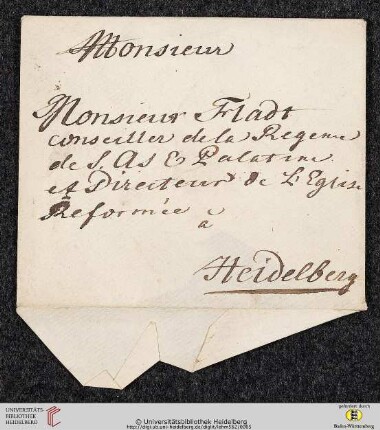 Monsieur
Monsieur Fladt
conseiller de la Regence
de S. A. S. E. Palatine
et Directeur de L'Eglise
Reformée
à
Heidelberg
UNIVERSITÄTS-
BIBLIOTHEK
HEIDELBERG
© Universitätsbibliothek Heidelberg
gefördert durch
Baden-Württemberg